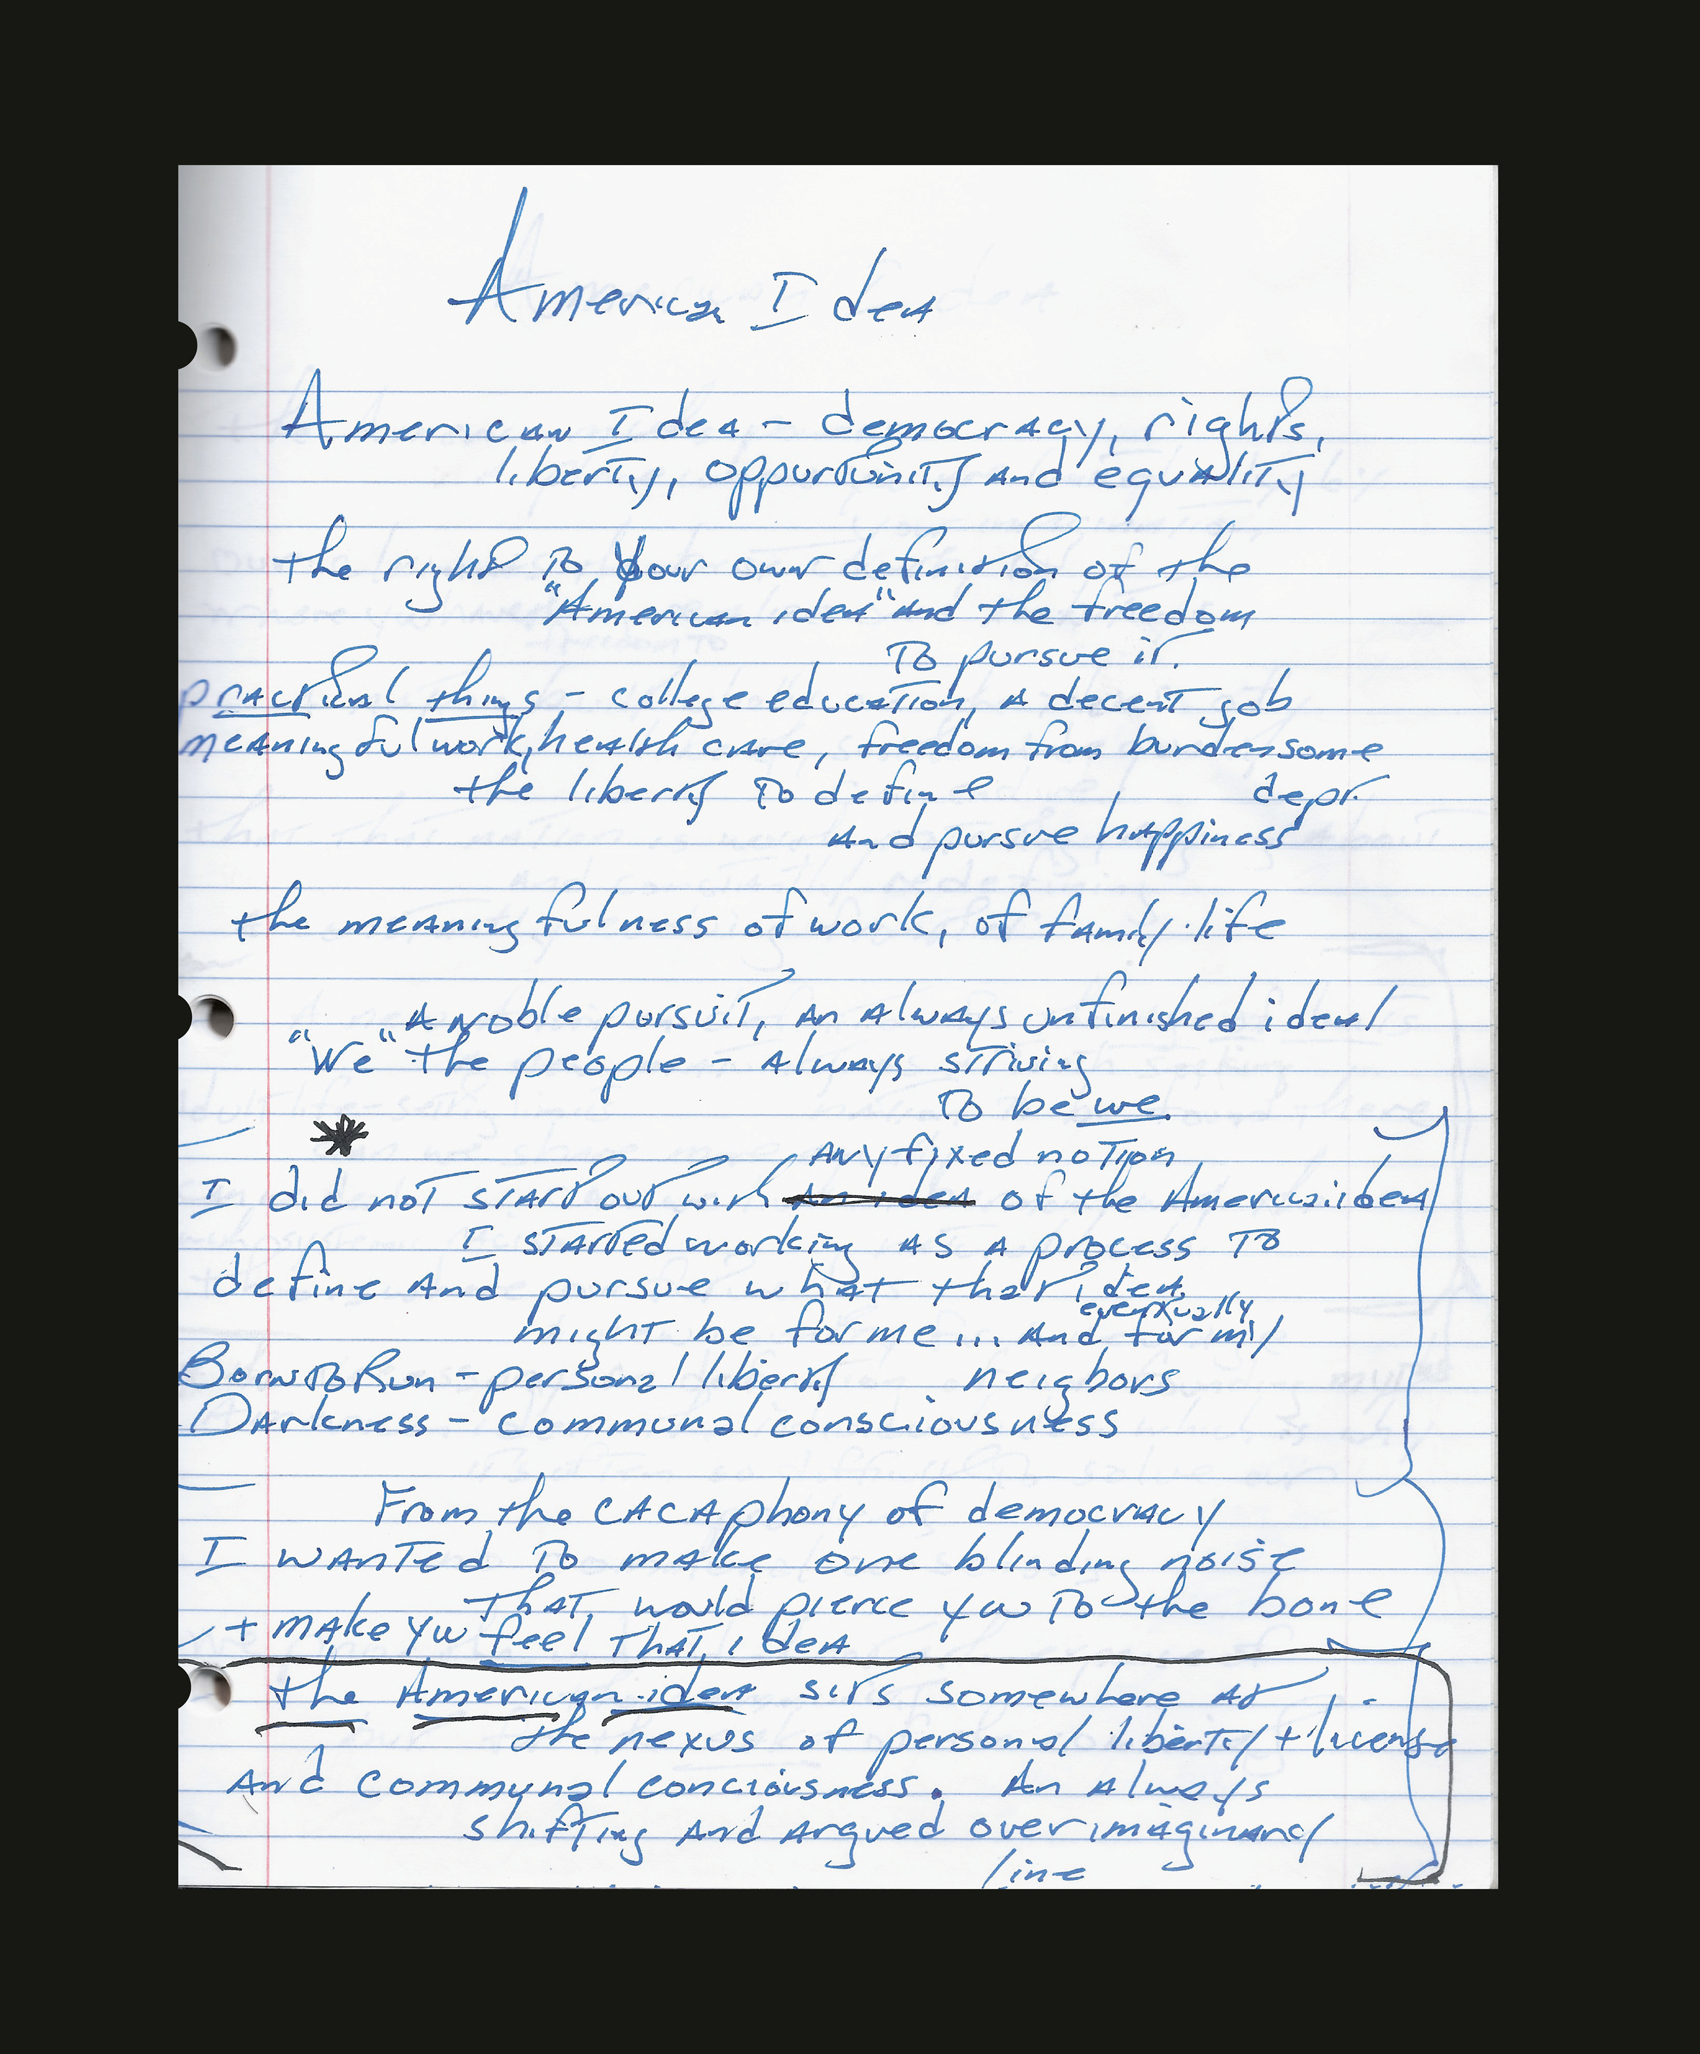 American Idea
American Idea - democracy, rights,
liberty, opportunity and equality
the right to your own definition of the
"American idea" and the freedom
to pursue it.
practical things - college education, a decent job
meaningful work, health care, freedom from burdensome
the liberty to define dept.
and pursue happiness
the meaningfulness of work, of family life
A noble pursuit, an always unfinished ideal
"We" the people - always striving
to be we.
any fixed notion
I did not start out with an idea of the American idea
I started working as a process to
define and pursue what that idea
eventually
might be for me... and for my
Born to Run - personal liberty neighbors
Darkness - communal consciousness
From the cacaphony of democracy
I wanted to make one blinding noise
that would pierce you to the bone
+ make you feel that idea
the American idea sits somewhere at
the nexus of personal liberty + license
and communal conciousness. An always
shifting and argued over imaginary
line